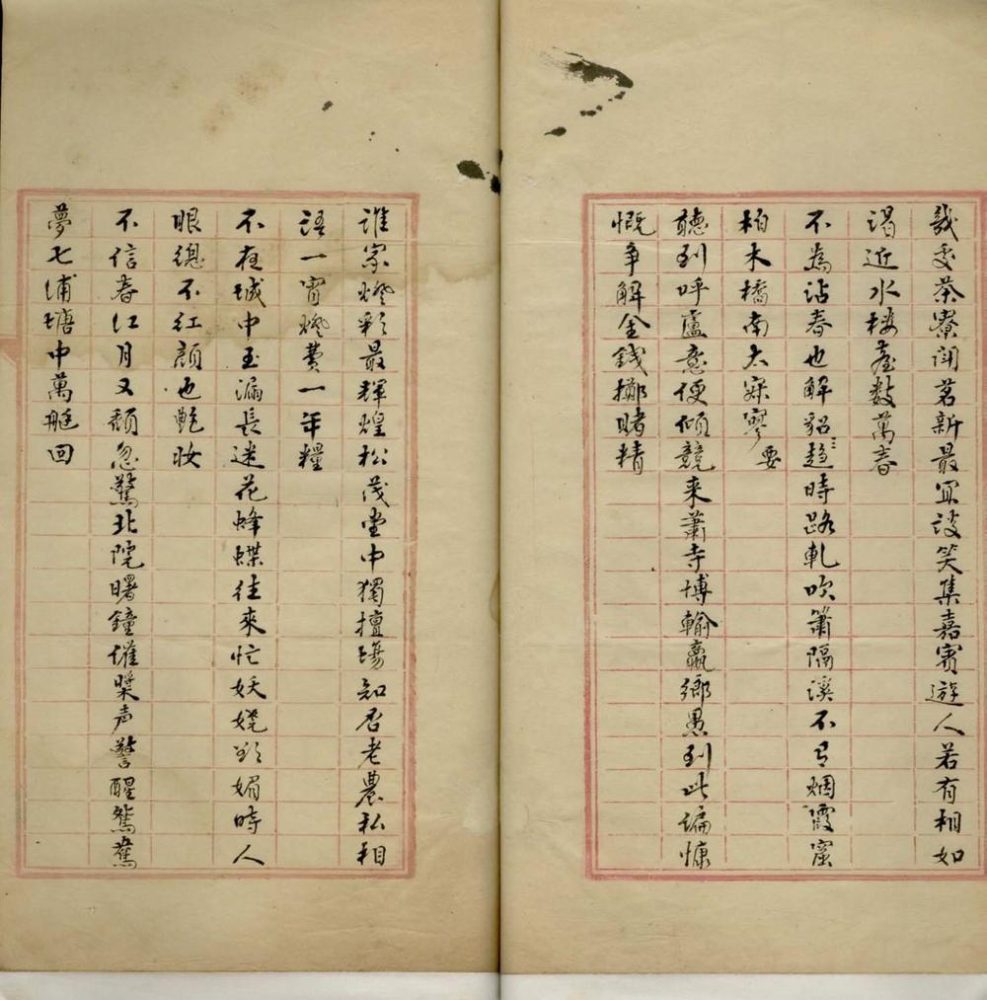 幾處茶寮鬥茗新最宜談笑集嘉賓遊人若有相如
渴近水樓臺數萬春
不為沽春也解貂趋時路軋吹簫隔溪不烟霞窟
柏木橋南太寂寥要
聽到呼盧意便傾競来蕭寺博輸贏鄉愚到此偏慷
慨爭解金錢擲賭精
誰家燈彩最輝煌松茂堂中獨擅場知否老農私相
語一宵燈費一年糧
不夜城中玉漏長迷花蜂蝶往來忙妖嬈欲媚時人
眼總不紅顏也艷妝
不信春江月又頹忽驚北院曙鐘催槳声警醒鴛鴦
夢七浦塘中萬艇回